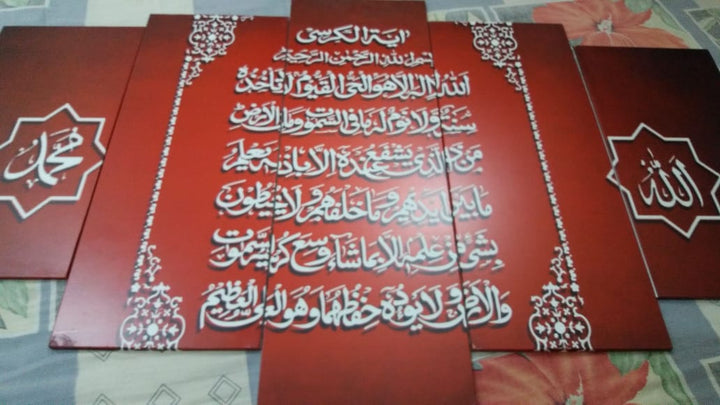 اية الكرسي
بسم الله الرحمن الرحيم
الله لا إله إلا هو الحي القيوم لا تأخذه
سنة ولا نوم له ما في السموت وما في الأرض
من ذا الذي يشفع عنده إلا بإذنه يعلم
ما بين أيديهم وما خلفهم ولا يحيطون
بشيء من علمه إلا بما شاء وسع كرسيه السموت
والأرض ولا يوده حفظهما وهو العلي العظيم
الله
محمد